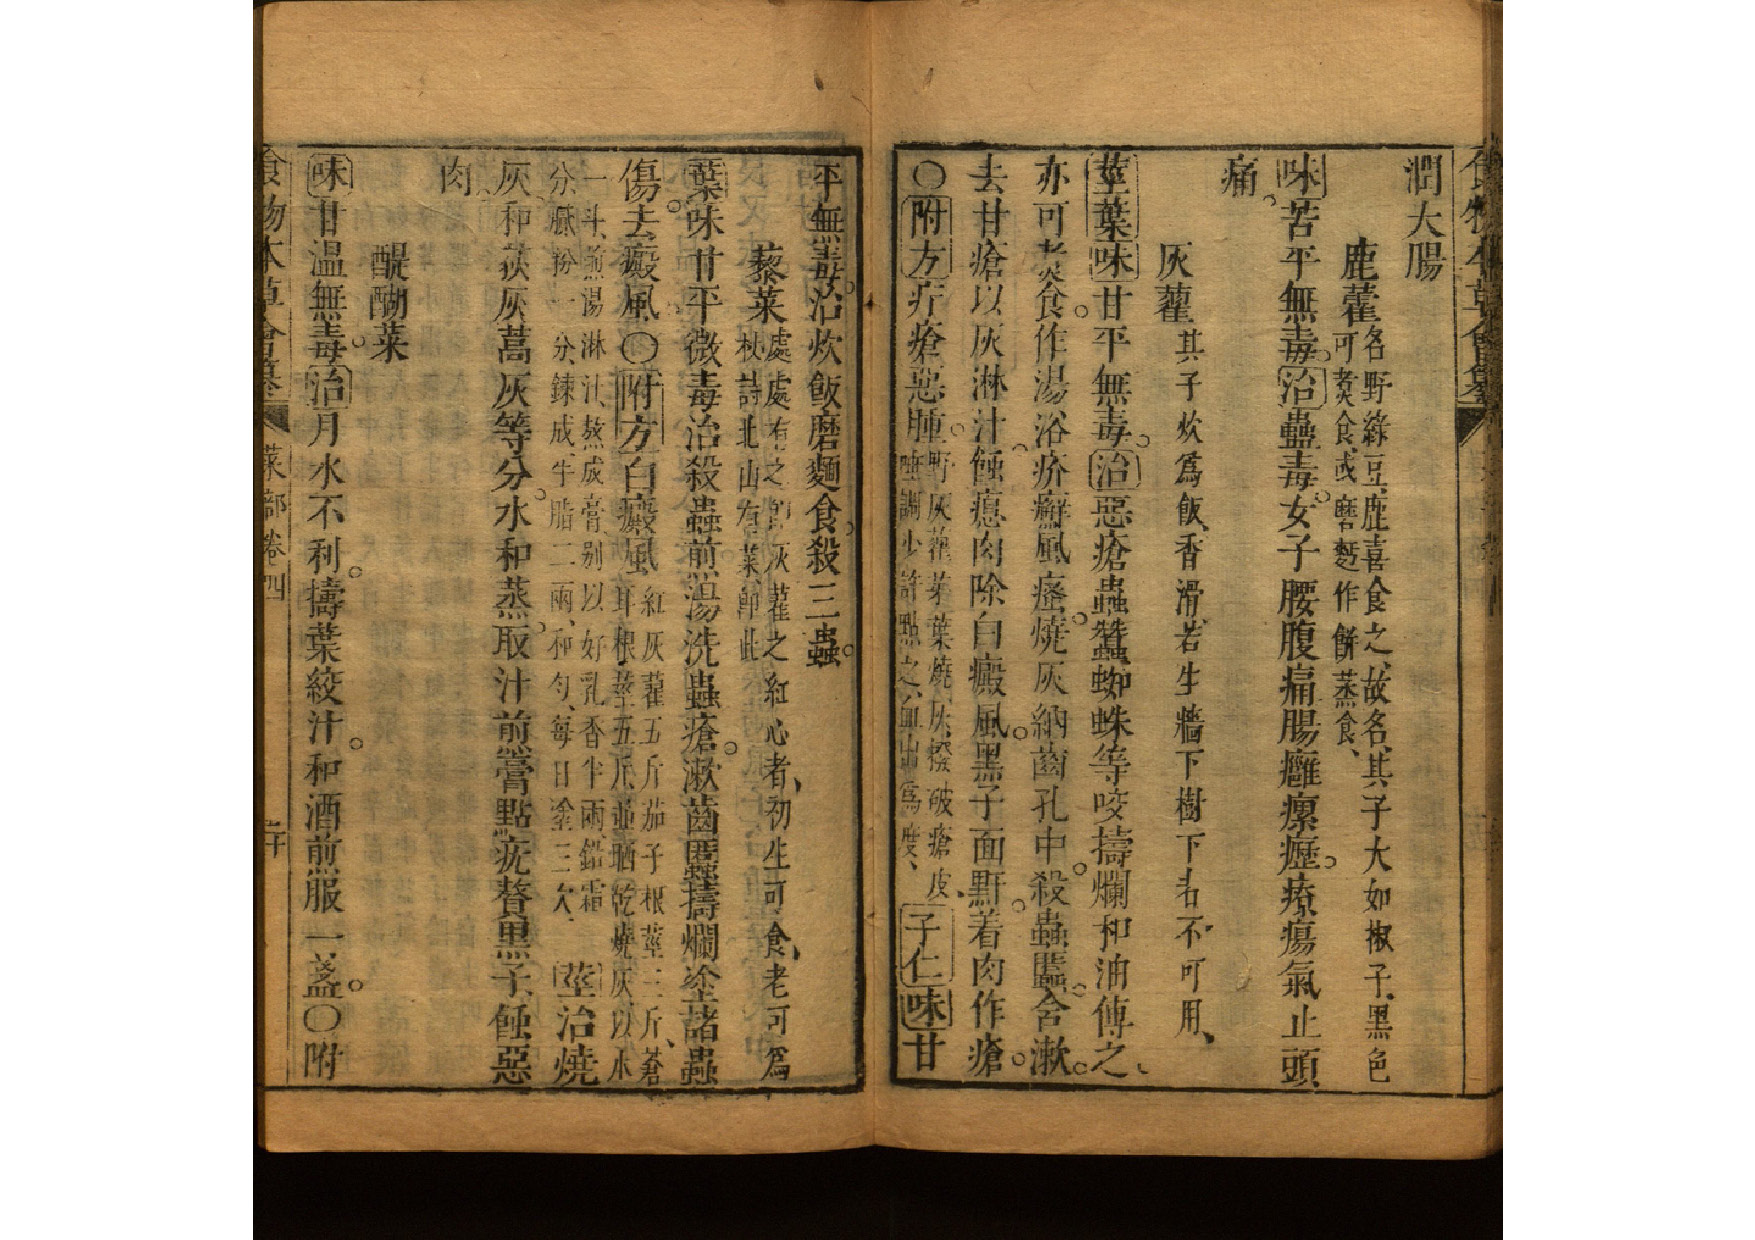 食物本草會纂
潤大腸
鹿藿名野綠豆、鹿喜食之、故名、其子大如椒子、黑色
可煑食、或磨麪作餅蒸食、
味苦平無毒。治蠱毒。女子腰腹痛腸癰瘰癧。療瘍氣止頭
痛。
灰藋其子炊爲飯、香滑、若生牆下樹下者不可用、
莖葉味甘平無毒。治惡瘡蟲蠶蜘蛛等咬擣爛和油傅之、
亦可煑食。作湯浴疥癬風瘙。燒灰納齒孔中。殺蟲䘌。含漱。
去甘瘡以灰淋汁蝕瘜肉除白癜風。黑子面䵟。着肉作瘡。
○附方疔瘡惡腫。野灰藋菜葉燒灰、撥破瘡皮、
唾調少許點之、血出爲度、
子仁味甘
平無毒。治炊飯磨麵食。殺三蟲。
藜菜處處有之、即灰藋之紅心者、初生可食、老可爲
杖、詩北山有萊、即此
葉味甘平微毒治殺蟲。煎湯洗蟲瘡。漱齒䘌擣爛塗諸蟲
傷。去癜風。○附方白癜風紅灰藋五斤茄子根莖三斤、蒼
耳根莖五斤並晒乾燒灰、以水
一斗、煎湯淋汁、熬成膏别以好乳香半兩、鉛霜
分、膩粉一分、鍊成、牛脂二兩、和勻、每日塗三次
莖治燒
灰。和荻灰蒿灰等分。水和蒸。取汁煎膏點疣贅黑子。蝕惡
肉
醍醐菜
味甘溫無毒。治月水不利。擣葉絞汁。和酒煎服一盞。○附
食物本草會纂 菜部卷四